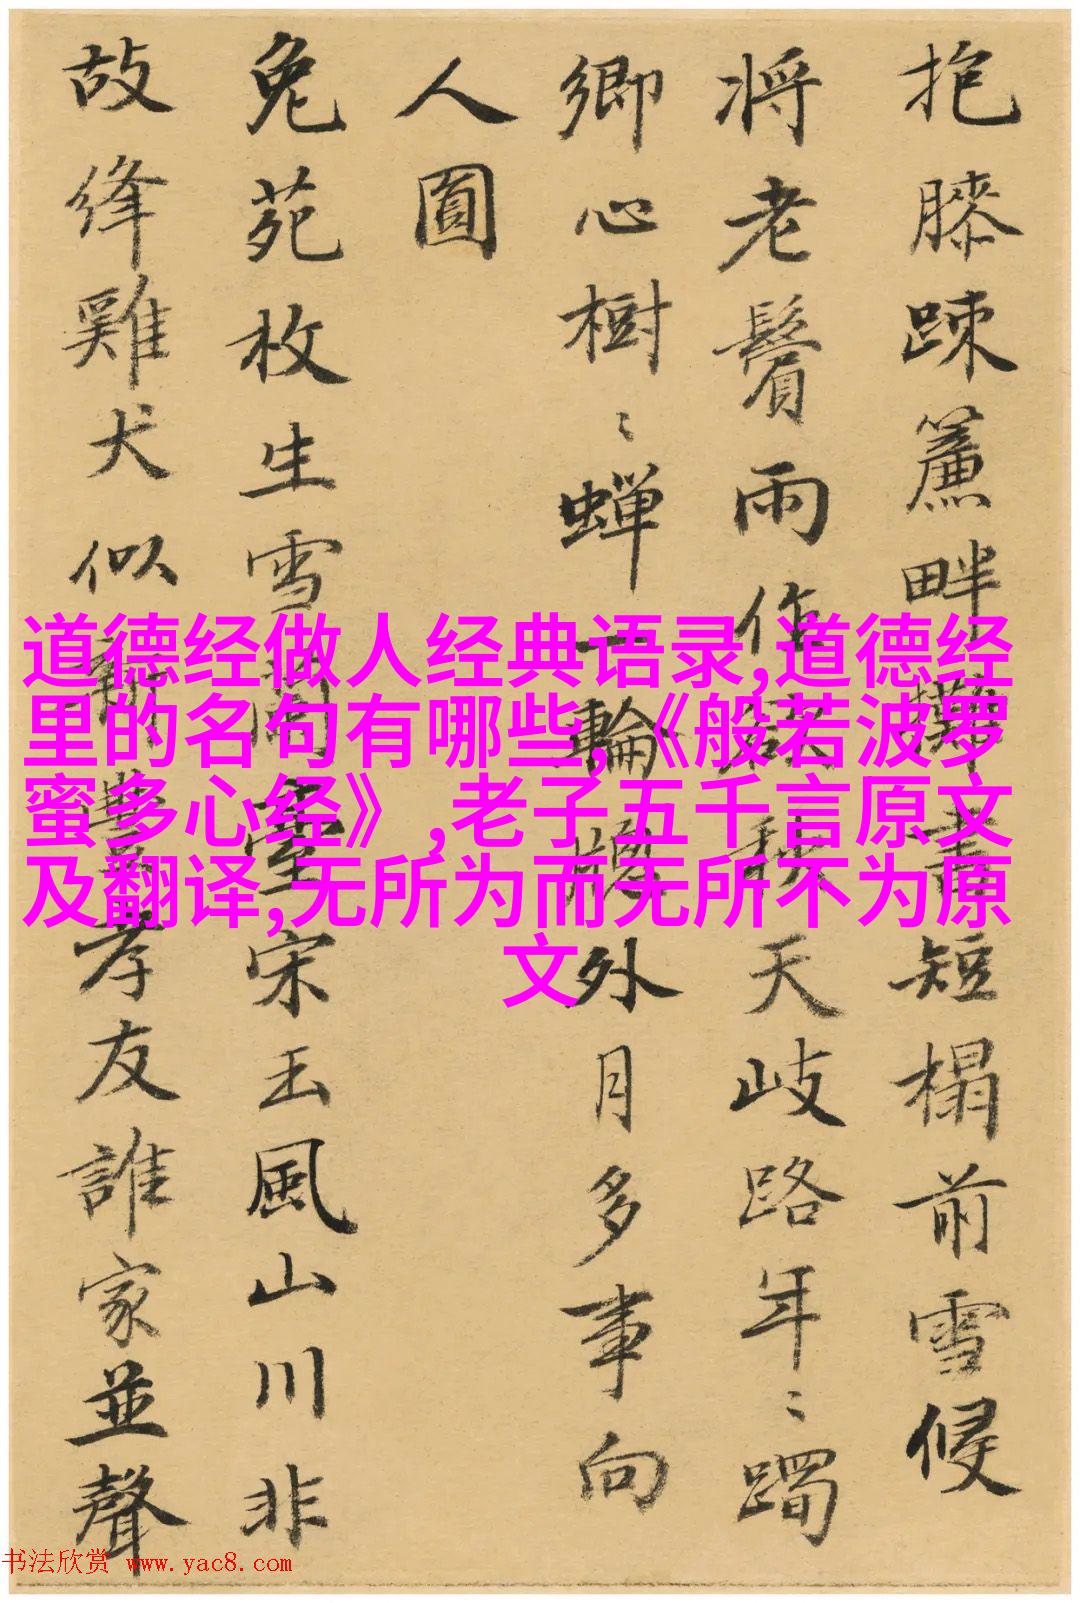 抱膝踈簾畔書短榻前雪候
将老鬢雨作秋天岐路年〻躅
鄉心樹〻蝉一輪牕外月多事向
人圓
兔苑枚生雪蘭臺宋玉風山川非
故絳雞犬似新豐孝友誰家並聲
道德经做人经典语录,道德经
里的名句有哪些,《般若波罗
蜜多心经》,老子五千言原文
及翻译,无所为而无所不为原
文
书法欣赏 www.yac8.com